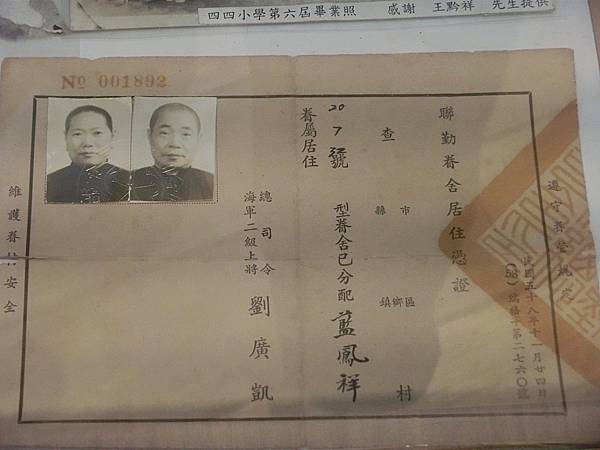 四四小學第六屆畢業照 感謝 王黔祥 先生提供
№ 001892
遵守眷管規定
民國五十八年十一月廿四日
(58) 字第二七六〇號
聯勤眷舍居住憑證
查 縣市 鎮鄉區 村
20 7 號 型眷舍已分配 藍鳳祥
眷屬居住
總司令
海軍二級上將 劉廣凱
維護眷村安全